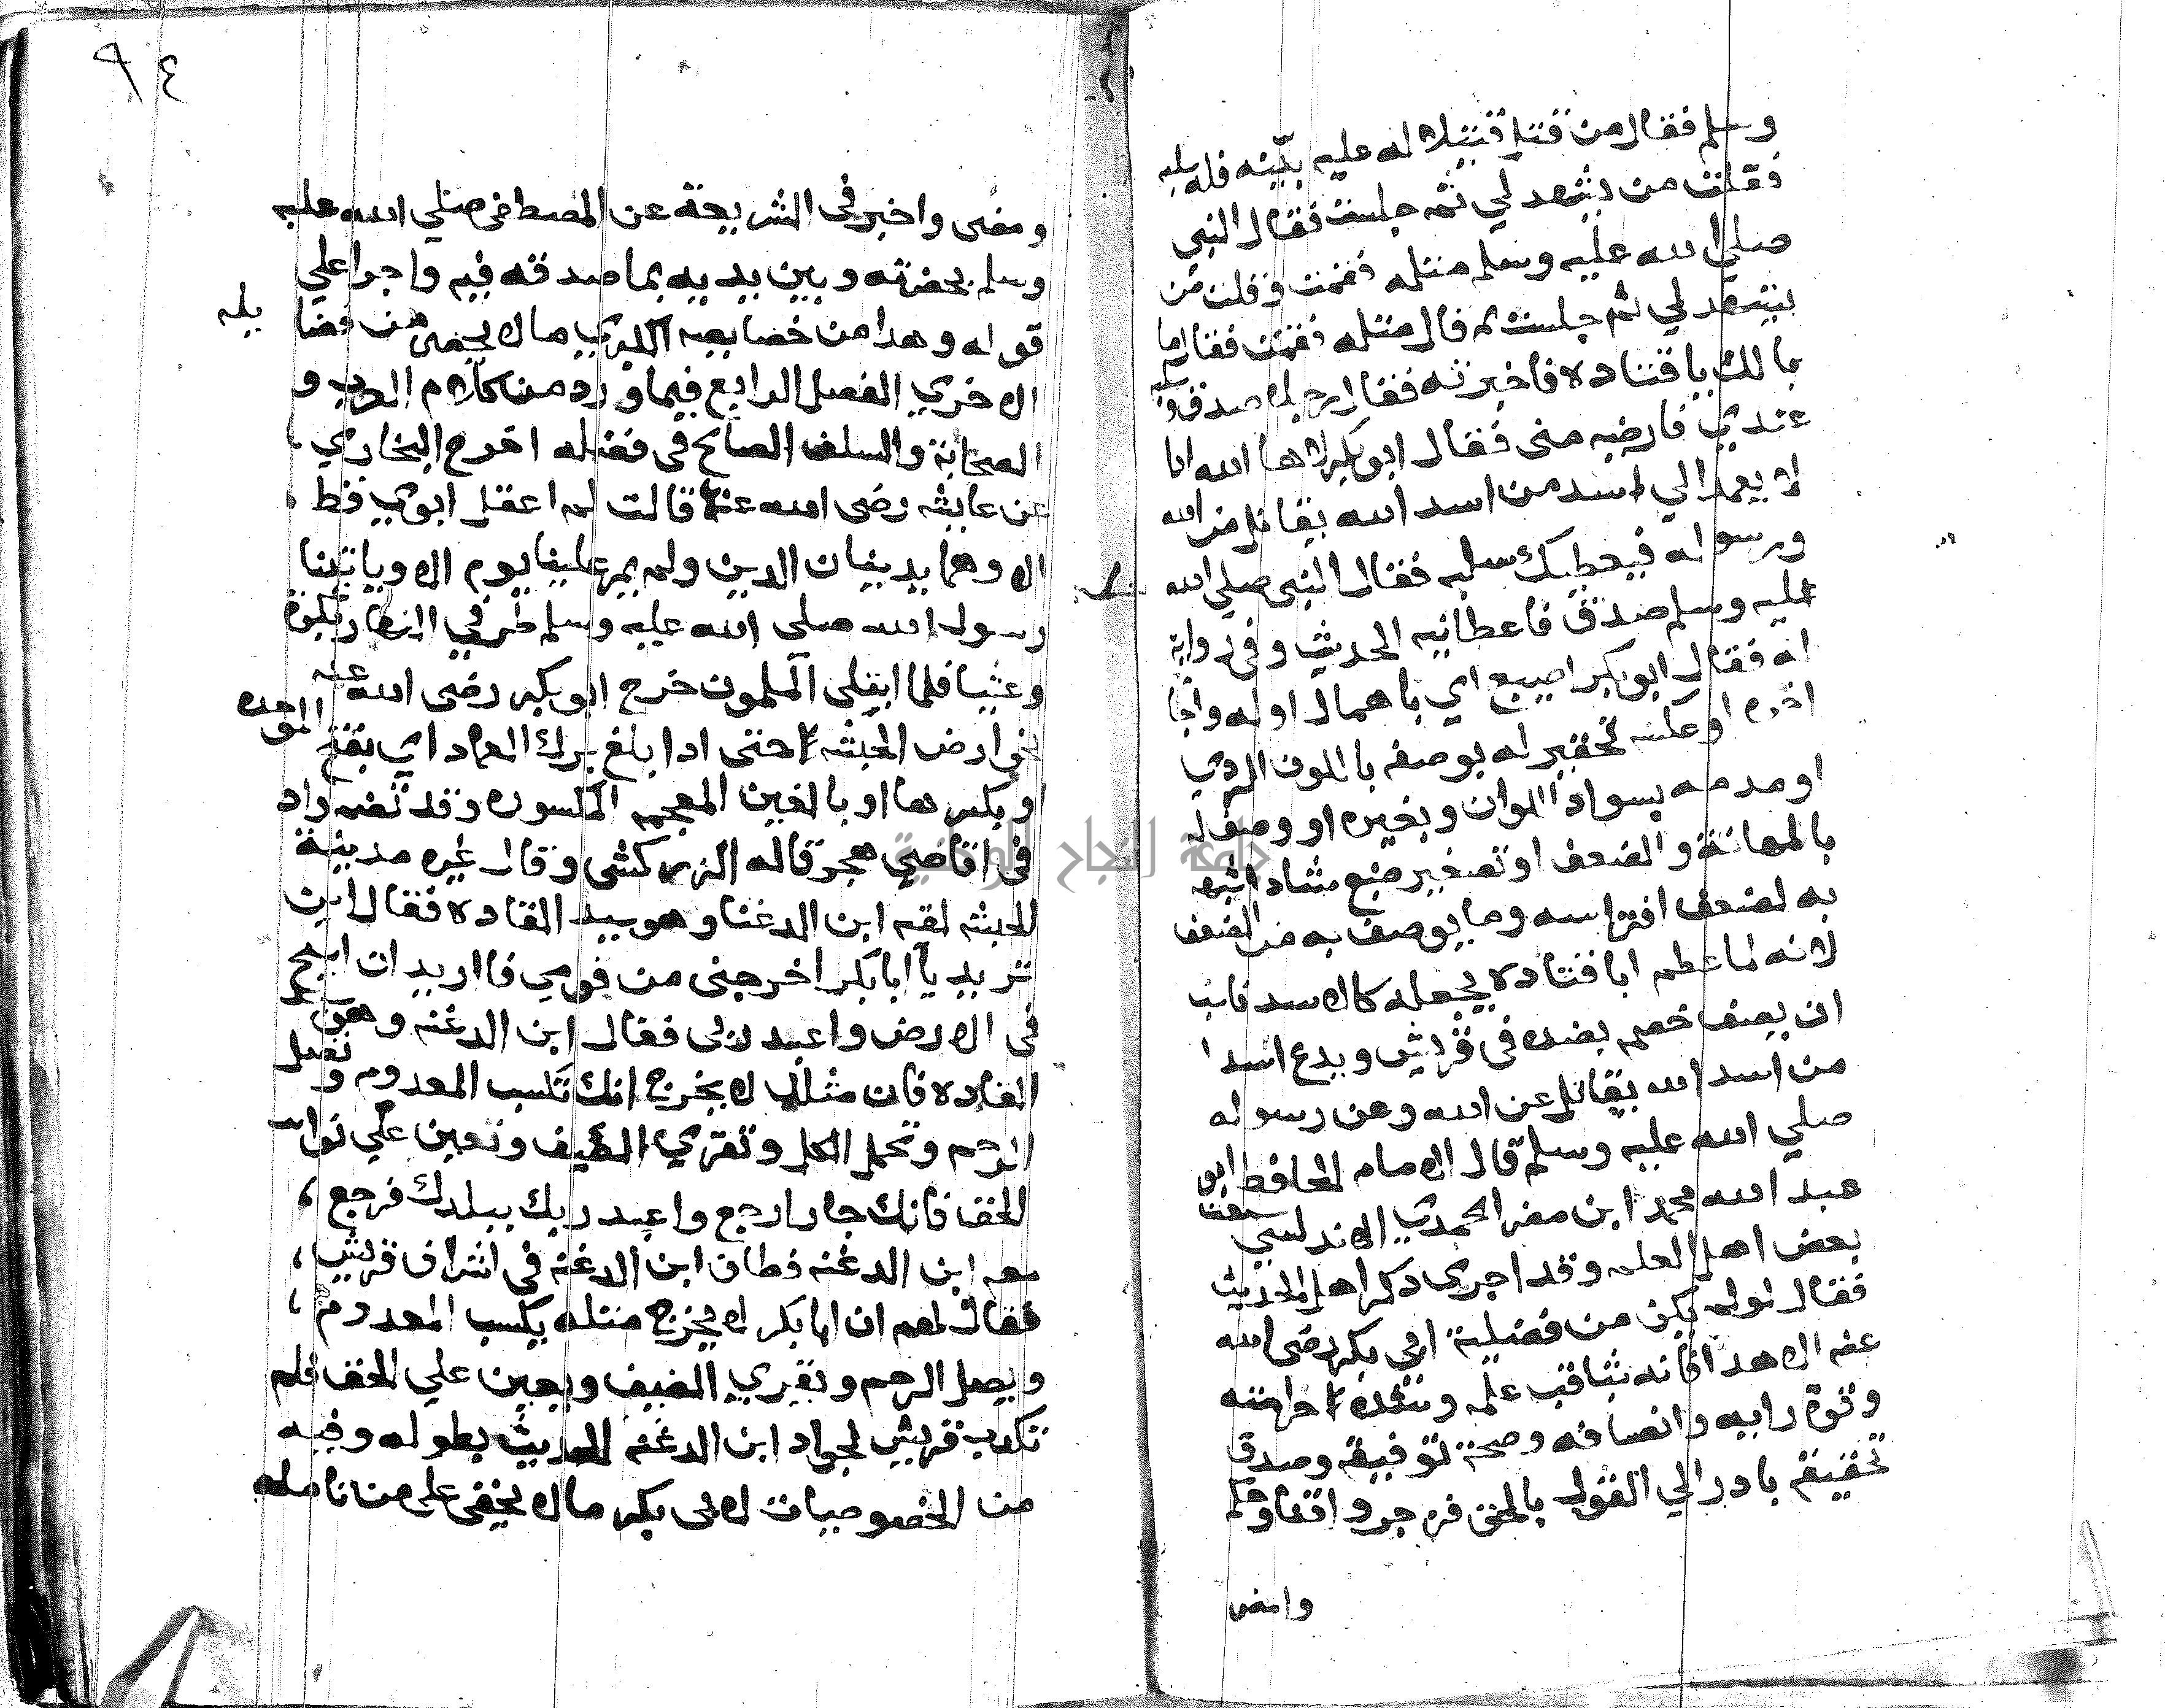 وسلم فقال من قتل قتيلا له عليه بينه فله سلبه
فقلت من يشهد لي ثم جلست فقال النبي
صلي الله عليه وسلم مثله فقمت وقلت من
يشهد لي ثم جلست ثم قال مثله فقمت فقال ما
مالك يا قتاده فاخبرته فقال رجل صدق وسلبه
عندي فارضيه مني فقال ابو بكر لاها الله اذا
لا يعمد الي اسد من اسد الله يقاتل عن الله
ورسوله فيعطيك سلبه فقال النبي صلي الله
عليه وسلم صدق فاعطانيه الحديث وفي رواية
له فقال ابو بكر اصيبع اي باهمال اوله واعجام
اخره او عكسه تحقير له بوصفه باللون الردي
او مدمه بسواد اللوان وبغيره او وصفه له
بالمهانة والضعف او تصغير ضبع شاذا شبهه
به لضعف افتراسه وما يوصف به من الضعف
لانه لما عظم ابا قتاده يجعله كالاسد ناسب
ان يصف خصمه بضده في قريش ويدع اسدا
من اسد الله يقاتل عن الله وعن رسوله
صلي الله عليه وسلم قال الامام الحافظ ابو
عبد الله محمد ابن نصر الحمدي الاندلسي سمعت
بعض اهل العلم وقد اجري ذكر اهل الحديث
فقال لو لم يكن من فضيلة ابي بكر رضي الله
عنه الا هذا فانه بثاقب علمه وشدة صرامته
وقوة رايه وانصافه وصحة توفيقه وصدق
تحقيقه بادر الي القول بالحق فزجر وافتي وحكم
وامضى
٩٤
ومضى واخبر في الشريعة عن المصطفى صلي الله عليه
وسلم بحضرته وبين يديه بما صدقه فيه واجرا علي
قوله وهدا من خصايصه الكبري مالا يحصى من فضا يله
الاخري الفصل الرابع فيما ورد من كلام العرب و
الصحابة والسلف الصالح في فضله اخرج البخاري
عن عايشه رضى الله عنها قالت لم اعقل ابوي قط
الا وهما يدينان الدين ولم يمر علينا يوم الا وياتينا
رسول الله صلي الله عليه وسلم طرفي النهار بكرة
وعشيا فلما ابتلي المسلمون خرج ابو بكر رضى الله عنه
نحو ارض الحبشه حتى ادا بلغ برك الغماد اي بفتح الموحده
او بكسرها او بالغين المعجمه المكسوره وقد تضم واد
في اقاصي هجر قاله الزركشي وقال غيره مدينة
للحبشه لقيه ابن الدغنا وهو سيد القاده فقال اين
تريد يا ابا بكر اخرجني من قومي فا اريد ان اسيح
في الارض واعبد ربى فقال ابن الدغنه وهو
القاده فان مثلك لا يخرج انك تكسب المعدوم وتصل
الرحم وتحمل الكل وتقري الضيف وتعين علي نوايب
الحق فانك جار ارجع واعبد ربك ببلدك فرجع
معه ابن الدغنه فطاف ابن الدغنه في اشراف قريش
فقال لهم ان ابا بكر لا يخرج مثله يكسب المعدوم
ويصل الرحم ويقري الضيف ويعين علي الحق فلم
تكذب قريش لجواد ابن الدغنه الحديث بطوله وفيه
من الخصوصيات لابى بكر مالا يخفى على من تامله
جامعة النجاح الوطنية